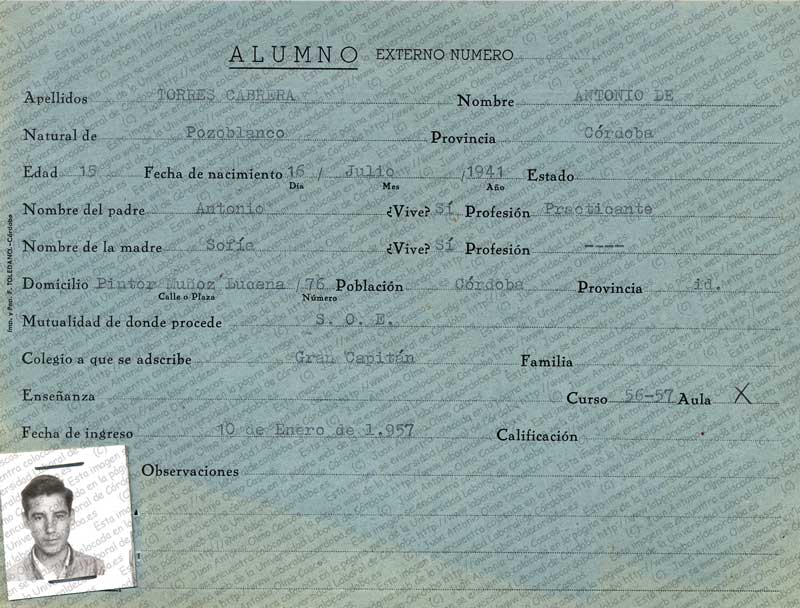 ALUMNO EXTERNO NUMERO
Apellidos TORRES CABRERA Nombre ANTONIO DE
Natural de Pozoblanco Provincia Córdoba
Edad 15 Fecha de nacimiento 16 / Julio /1941 Estado
Día Mes Año
Nombre del padre Antonio ¿Vive? Sí Profesión Practicante
Nombre de la madre Sofía ¿Vive? Sí Profesión ----
Domicilio Pintor Muñoz Lucena /76 Población Córdoba Provincia id.
Calle o Plaza Número
Mutualidad de donde procede S. O. E.
Colegio a que se adscribe Gran Capitán Familia
Enseñanza Curso 56-57 Aula X
Fecha de ingreso 10 de Enero de 1.957 Calificación
Observaciones
Imp. y Pap. F. TOLEDANO.-Córdoba